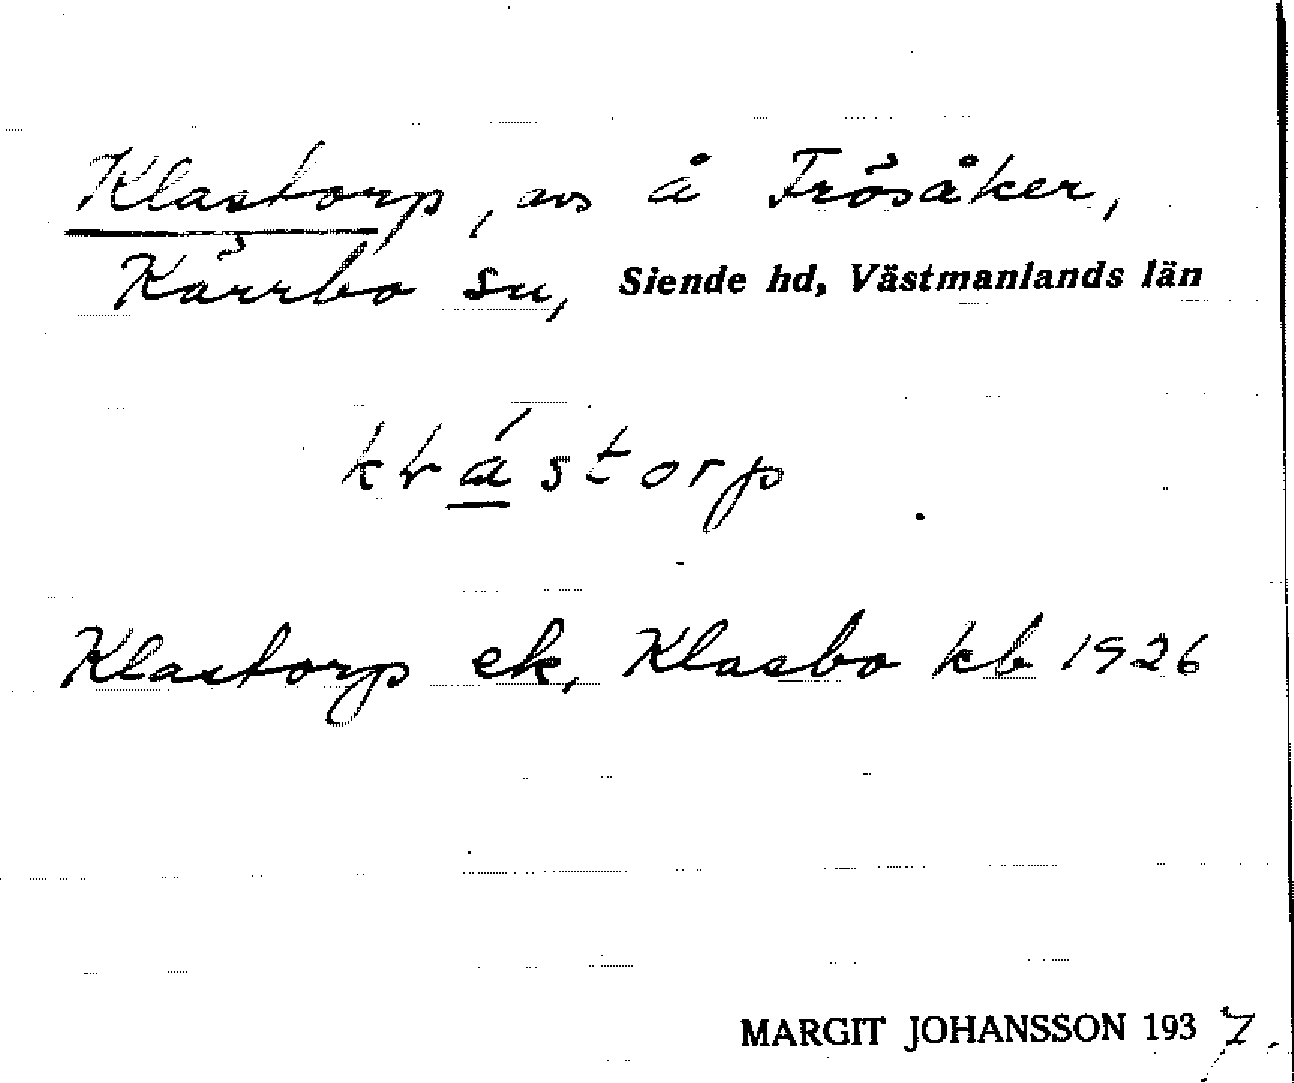 Klastorp, avs å Frösåker,
Kärrbo sn, Siende hd, Västmanlands län
klástorp
Klastorp ek, Klasbo kb 1926
MARGIT JOHANSSON 1937.